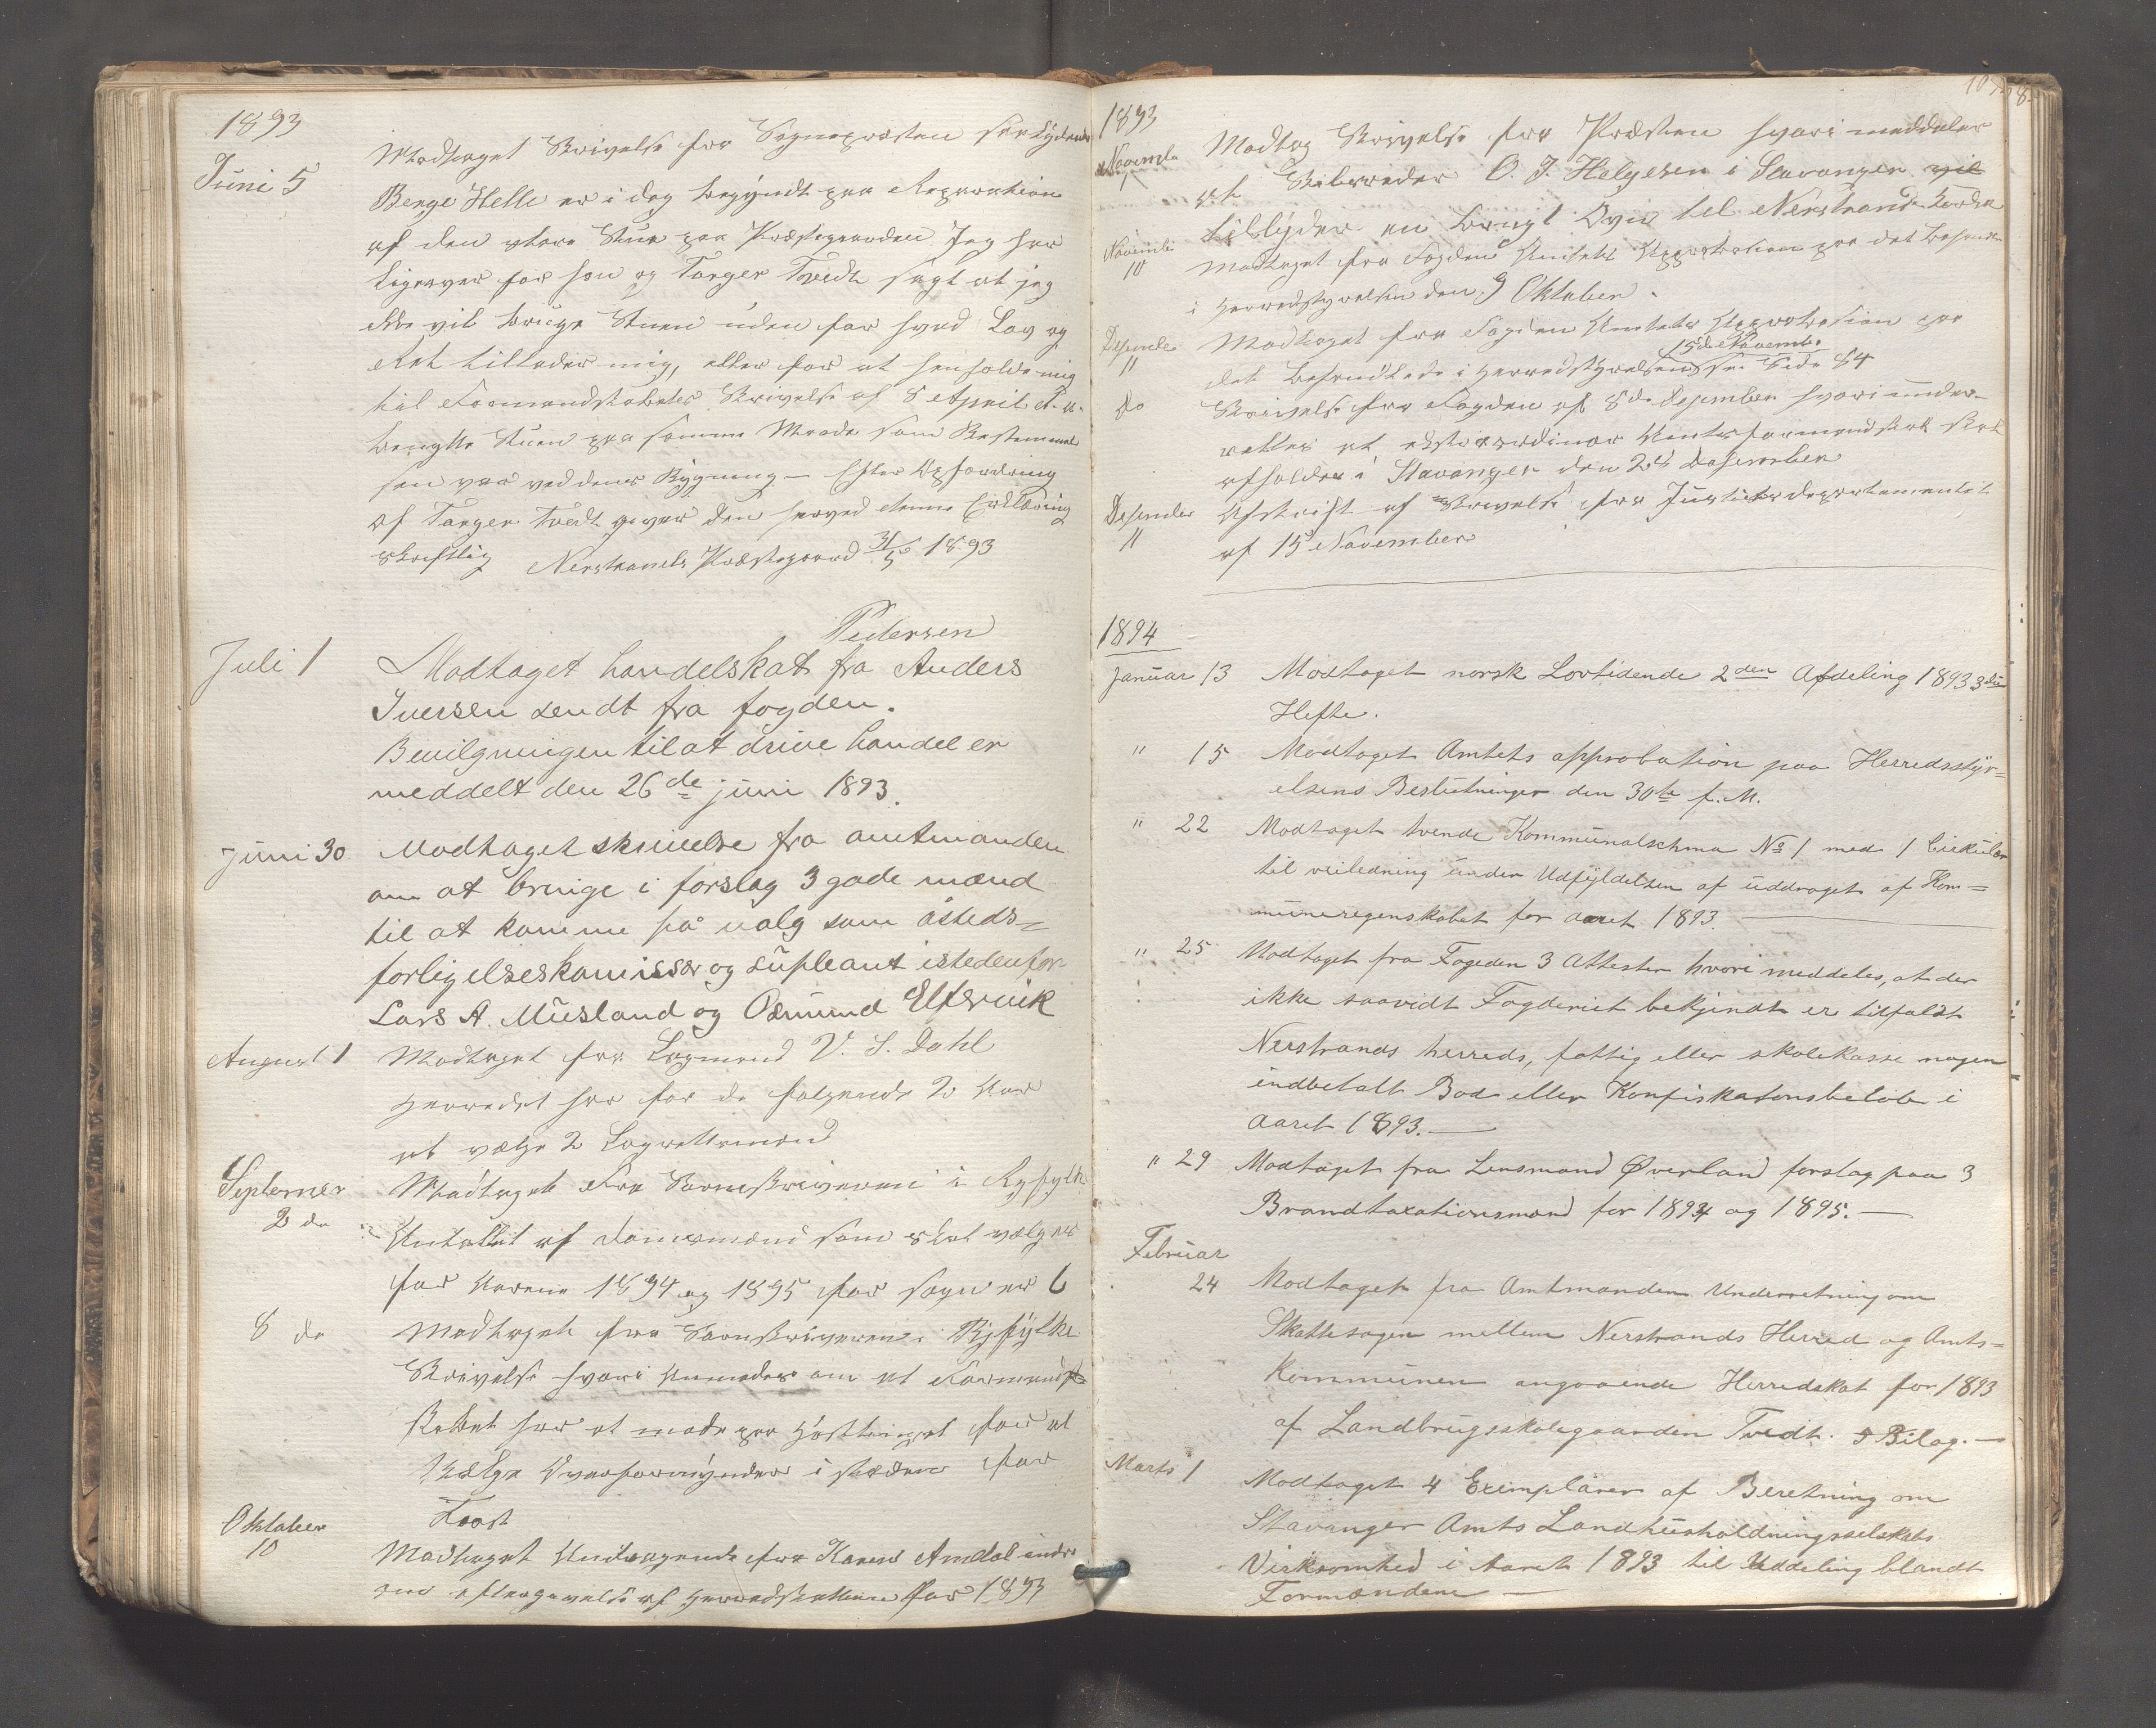 1893
Juni 5
Modtaget Skrivelse fra Sognepresten saalydende
Berge Helle er i dag begyndt paa Reparation
af den store Stue paa Præstegaarden Jeg har
ligeover for han og Torger Tvedt sagt at jeg
ikke vil bruge Stuen uden for hvad Lov og
Ret tillader mig, eller for at henholde mig
til Formandskabets Skrivelse af 8 April d. a.
benytte Stuen paa samme Maade som Bestemmel
sen var ved dens Bygning — Efter Opfordring
af Torger Tvedt giver den herved denne Erklæring
skriftlig Nerstrands Præstegaard 31/5 1893
Pedersen
Juli 1 Modtaget handelskat fra Anders
Iversen sendt fra fogden.
Bevilgningen til at drive handel er
meddelt den 26de juni 1893.
juni 30 Modtaget skrivelse fra amtmanden
om at bringe i forslag 3 gode mænd
til at komme på valg som åsteds=
forligelseskomissær og supleant istedenfor
Lars A. Musland og Osmund Eltervik
August 1 Modtaget fra Lagmand V. S. Dahl
Herredet har for de folgende 2 Aar
at vælge 2 Lagrettemænd
September
2 de
Modtaget fra Sorenskriveren i Ryfylke
Antallet af Domsmænd som skal vælges
for Aarene 1894 og 1895 for sogn er 6
8 de Modtaget fra Sorenskriveren i Ryfylke
Skrivelse hvori anmodes om at Formand
skabet har at møde paa Hosttinget for at
Vælge Overformynder i steden for
Oktober
10
Modtaget fra Amdal
om eftergivelse af Herredskatten for 1893
1893
November
Modtog Skrivelse fra Præsten hvori meddeles
at Skibsreder O. J. Helgesen i Stavanger vil
tilbyder en brugt Ovn til Nerstrands Kirke
November
10
Modtaget fra Fogden Amtets Approbation paa det behandlede
i Herredstyrelsen den 9 Oktober.
Desember
11
Modtaget fra Fogden Amtets Approbation paa
15de Novembr.
det behandlede i Herredstyrelsen se Side 84
do Skrivelse fra Fogden af 8de Desember hvori under-
rettes at ekstraordinær Amtsformandskab skal
afholdes i Stavanger den 28 Desember
Desember
11
Afskrift af Skrivelse fra Justitsdepartementet
af 15 November
1894
Januar 13 Modtaget norsk Lovtidende 2den Afdeling 1893 3die
Hefte.
" 15 Modtaget Amtets approbation paa Herredsstyr=
elsens Beslutninger den 30te f. M.
" 22 Modtaget tvende Kommunalschma No 1 med 1 Cirkulær
til veiledning under Udfyldelsen af uddraget af Kom=
muneregenskabet for aaret 1893.
" 25 Modtaget fra Fogeden 3 Attester hvori meddeles, at der
ikke saavidt Fogderiet bekjendt er tilfaldt
Nerstrands herreds, fattig eller skolekasse nogen
indbetalt Bod eller Konfiskasonsbeløb i
aaret 1893. —
" 29 Modtaget fra Lensmand Øverland forslag paa 3
Brandtaxationsmænd for 1894 og 1895. —
Februar
24 Modtaget fra Amtmanden Underretning om
Skattesagen mellem Nerstrands Herred og Amts=
kommunen angaaende Herredskat for 1893
af Landbrugsskolegaarden Tvedt. 5 Bilag. —
Marts 1 Modtaget 4 Exemplarer af Beretning om
Stavanger Amts Landhusholdningsselskabs
Virksomhed i Aaret 1893 til Uddeling blandt
Formændene —